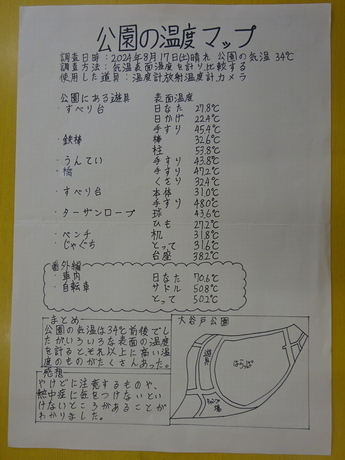 公園の温度マップ
調査日時:2024年8月17日(土)晴れ 公園の気温 34℃
調査方法:気温表面温度を計り比較する
使用した道具:温度計放射温度計カメラ
公園にある遊具 表面温度
・すべり台 日なた 27.8℃
日かげ 22.4℃
手すり 45.4℃
・鉄棒 棒 32.6℃
柱 53.8℃
・うんてい 手すり 43.8℃
・橋 手すり 47.2℃
くさり 32.4℃
・すべり台 本体 31.0℃
手すり 48.0℃
・ターザンロープ 球 43.6℃
ひも 27.2℃
・ベンチ 机 31.8℃
・じゃぐち とって 31.6℃
台座 38.2℃
番外編
・車内 日なた 70.6℃
・自転車 サドル 50.8℃
とって 50.2℃
まとめ
公園の気温は34℃前後でし
たがいろいろな表面の温度
を計ると、それ以上に高い温
度のものがたくさんあった。
感想
やけどに注意するものや、
熱中症に気をつけないとい
けないところがあることが
わかりました。
大谷戸公園
遊具
はらっぱ